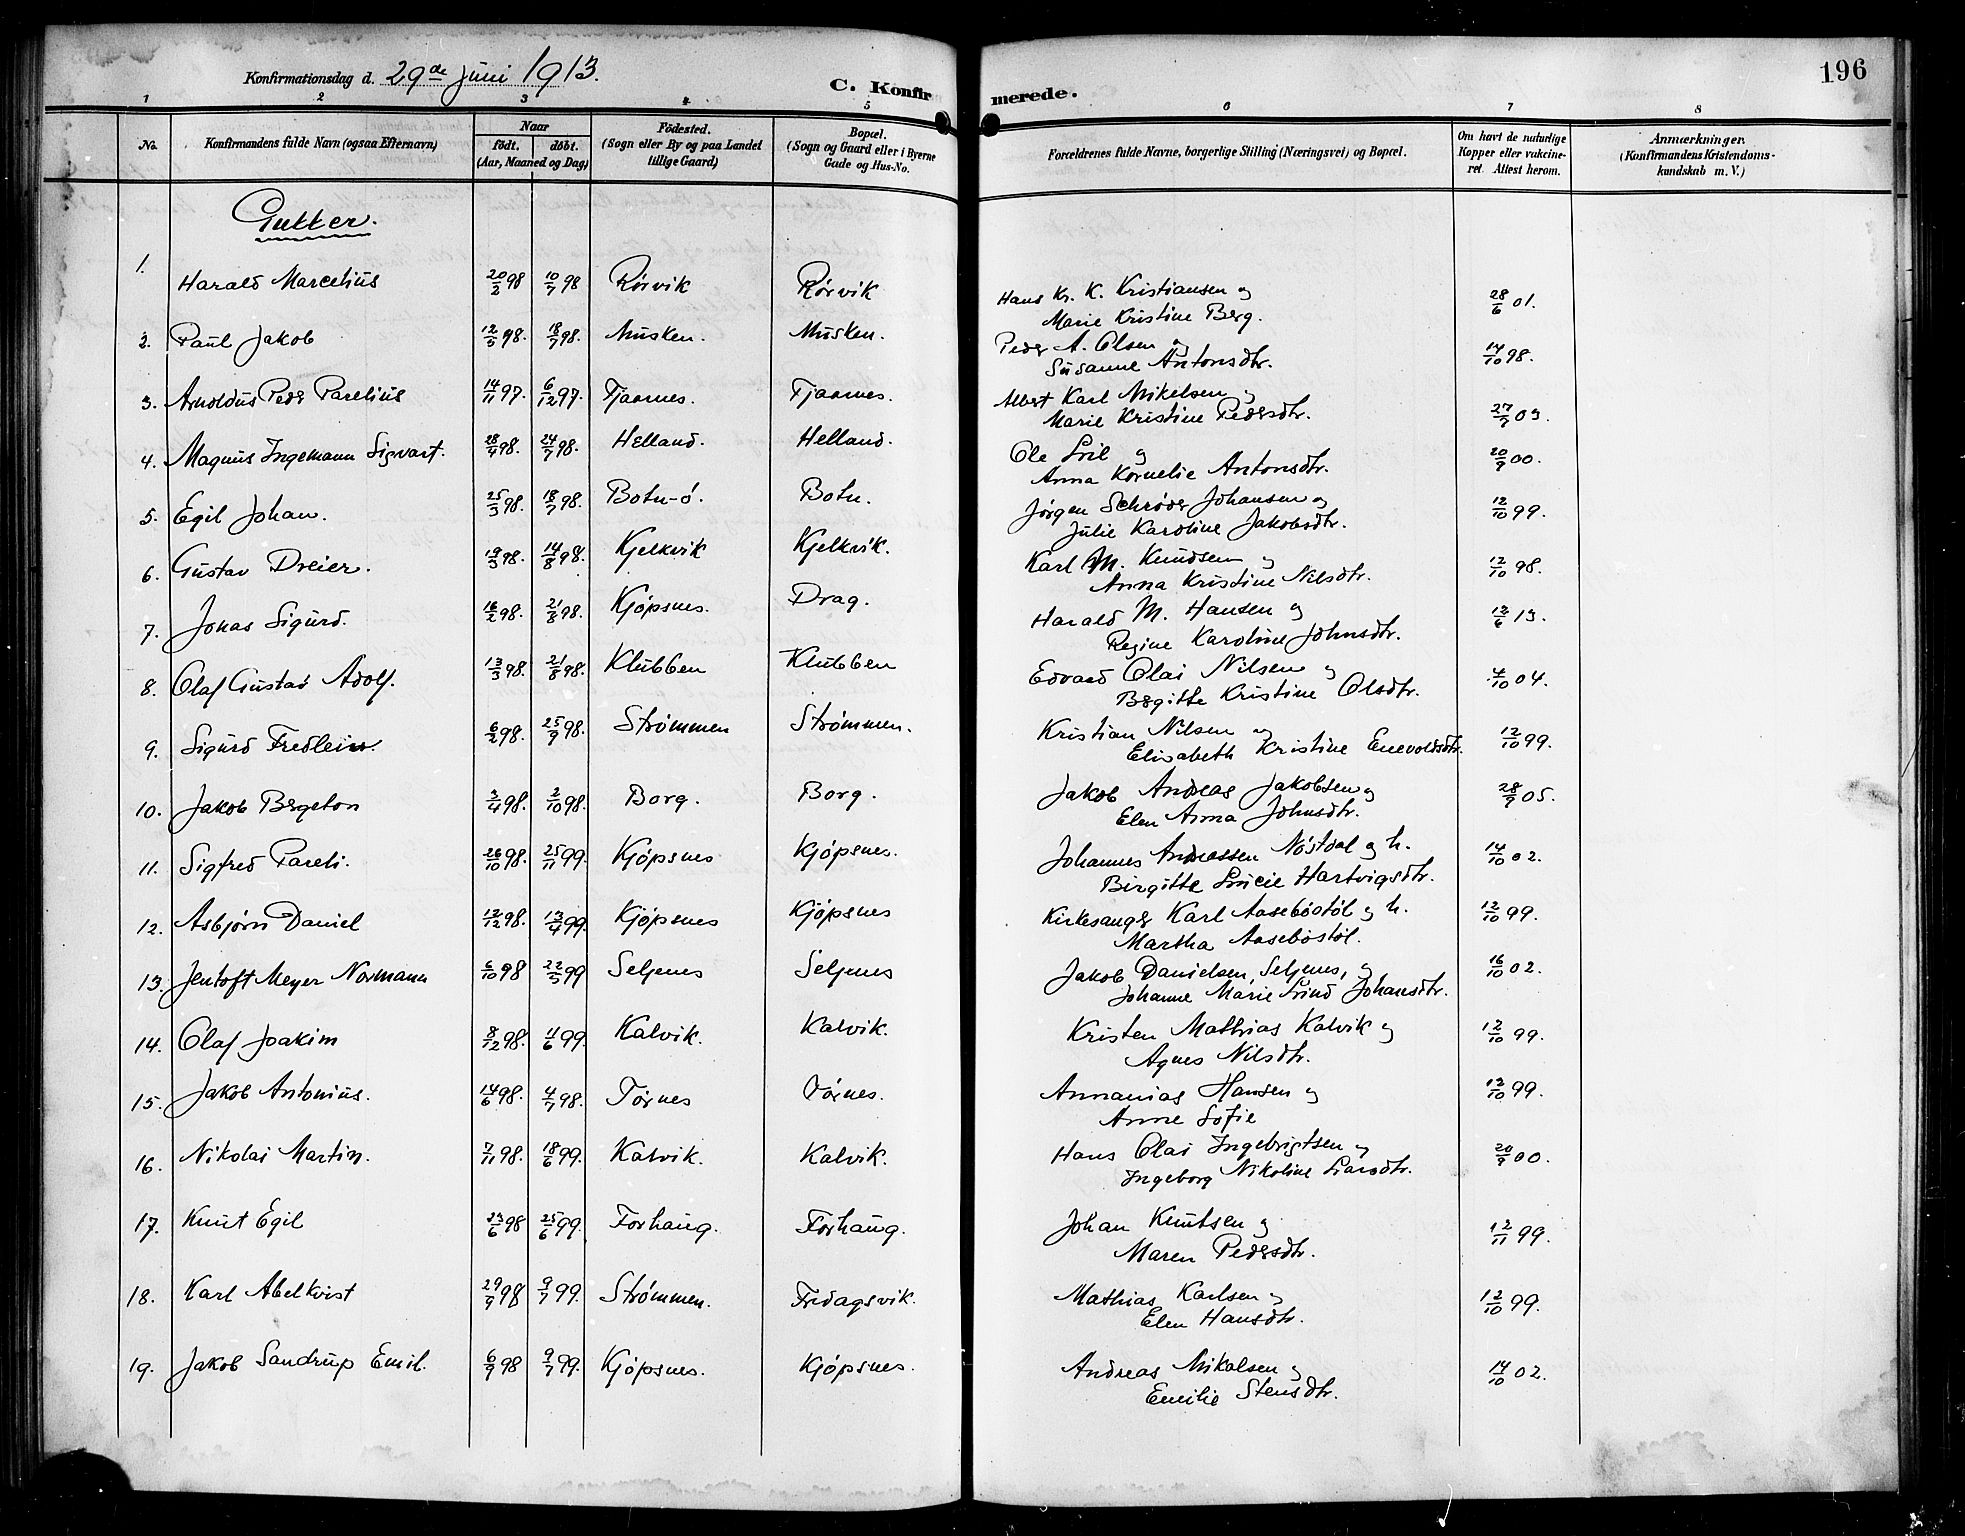 196
Konfirmationsdag d. 29de juni 1913.
C. Konfirmerede.
1 2 3 4 5 6 7 8
No.
Konfirmandens fulde Navn (ogsaa Efternavn)
Naar
födt. döbt.
(Aar, Maaned og Dag)
Födested.
(Sogn eller By og paa Landet
tillige Gaard)
Bopæl.
(Sogn og Gaard eller i Byerne
Gade og Hus-No.
Forældrenes fulde Navne, borgerlige Stilling (Næringsvei) og Bopæl.
Om havt de naturlige
Kopper eller vakcine-
ret. Attest herom.
Anmærkninger.
(Konfirmandens Kristendoms-
kundskab m. V.)
Gutter.
1. Harald Marcelius 20/2 98 10/7 98 Rörvik Rörvik Hans Kr. K. Kristiansen og 28/6 01.
Marie Kristine Berg.
2. Paul Jakob 12/5 98. 18/7 98. Musken. Musken. Peder A. Olsen og 14/10 98.
Susanne Antonsdtr.
3. Arnoldus Peder Parelius 14/11 97. 6/12 97. Tjaarnes. Tjaarnes. Albert Karl Mikelsen og 27/7 03.
Marie Kristine Pedersdtr.
4. Magnus Ingemann Sigvart. 28/4 98. 24/7 98. Helland. Helland. Ole og 20/9 00.
Anna Kornelie Antonsdtr.
5. Egil Johan. 25/3 98. 18/7 98. Botn-ö. Botn. Jörgen Schröder Johansen og 12/10 99.
Julie Karoline Jakobsdtr.
6. Gustav Dreier. 19/3 98. 14/8 98. Kjelkvik Kjelkvik. Karl M. Knudsen og 12/10 98.
Anna Kristine Nilsdtr.
7. Jonas Sigurd. 16/2 98. 21/8 98. Kjöpsnes. Drag. Harald M. Hansen og 12/6 13.
Regine Karoline Johnsdtr.
8. Olaf Gustav Adolf. 13/3 98. 21/8 98. Klubben Klubben Edvard Olai Nilsen og 4/10 04.
Bergitte Kristine Olsdtr.
9. Sigurd Fredlein 6/2 98. 25/9 98. Strömmen Strömmen. Kristian Nilsen og 12/10 99.
Elisabeth Kristine Enevoldsdtr.
10. Jakob Bergeton 3/4 98. 2/10 98. Borg. Borg. Jakob Andreas Jakobsen og 28/9 05.
Elen Anna Johnsdtr.
11. Sigfred Pareli. 26/10 98. 25/11 99. Kjöpsnes Kjöpsnes. Johannes Andreassen Nöstdal og h. 14/10 02.
Birgitte Lucie Hartvigsdtr.
12. Asbjörn Daniel 12/12 98. 13/4 99 Kjöpsnes Kjöpsnes Kirkesanger Karl Aaseböstöl og h. 12/10 99.
Martha Aaseböstöl.
13. Jentoft Meyer Normann 6/10 98 22/5 99 Seljenes Seljenes Jakob Danielsen, Seljenes, og 16/10 02.
Johanne Marie Lind Johansdtr.
14. Olaf Joakim 8/12 98. 4/6 99. Kalvik. Kalvik. Kristen Mathias Kalvik og 12/10 99.
Agnes Nilsdtr.
15. Jakob Antonius. 14/6 98. 4/7 98. Törnes Törnes. Annanias Hansen og 12/10 99.
Anne Sofie
16. Nikolai Martin. 7/11 98. 18/6 99. Kalvik. Kalvik. Hans Olai Ingebrigtsen og 20/9 00.
Ingeborg Nikoline Larsdtr.
17. Knut Egil 23/6 98 25/6 99. Forhaug. Forhaug. Johan Knutsen og 12/11 99.
Maren Pedersdtr.
18. Karl Abelkvist 29/9 98 9/7 99. Strömmen. Fredagsvik. Mathias Karlsen og 12/10 99.
Elen Hansdtr.
19. Jakob Sandrup Emil. 6/9 98 9/7 99. Kjöpsnes. Kjöpsnes. Andreas Mikalsen og 14/10 02.
Emilie Stensdtr.